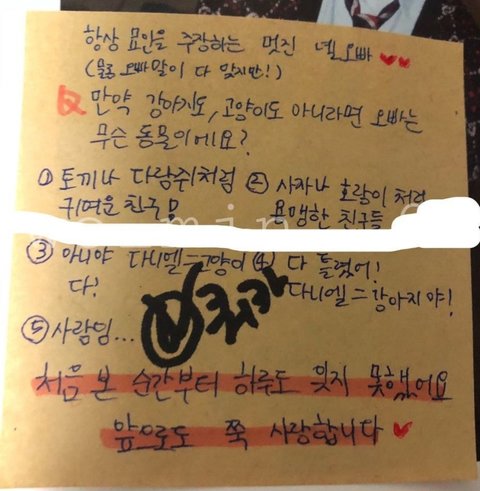 항상 묘인을 주장하는 멋진 녤오빠
(물론 오빠말이 다 맞지만!)
Q 만약 강아지도, 고양이도 아니라면 오빠는
무슨 동물이에요?
① 토끼나 다람쥐처럼
귀여운 친구들
② 사자나 호랑이 처럼
용맹한 친구들
③ 아니야 다니엘=고양이
다!
④ 다 틀렸어!
다니엘=강아지야!
⑤ 사람임...
처음 본 순간부터 하루도 잊지 못했어요
앞으로도 쭉 사랑합니다